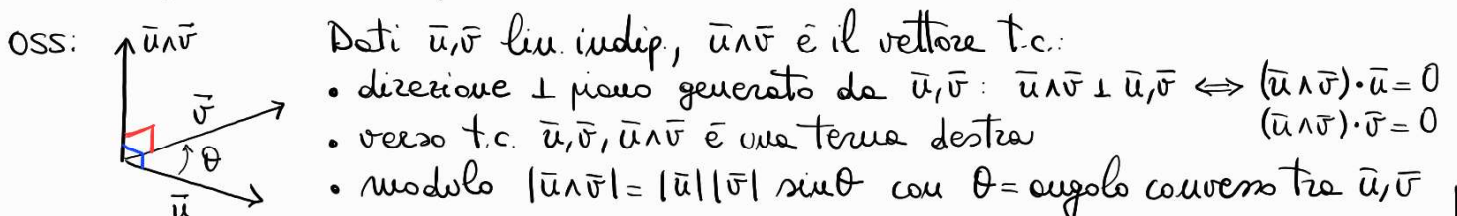 OSS: ū∧v̄ Dati ū,v̄ lin. indip., ū∧v̄ è il vettore t.c.:
v̄ • direzione ⊥ piano generato da ū,v̄ : ū∧v̄ ⊥ ū,v̄ ⟺ (ū∧v̄)·ū = 0
(ū∧v̄)·v̄ = 0
θ • verso t.c. ū,v̄,ū∧v̄ è una terna destra
ū • modulo |ū∧v̄| = |ū||v̄| sinθ con θ = angolo convesso tra ū,v̄